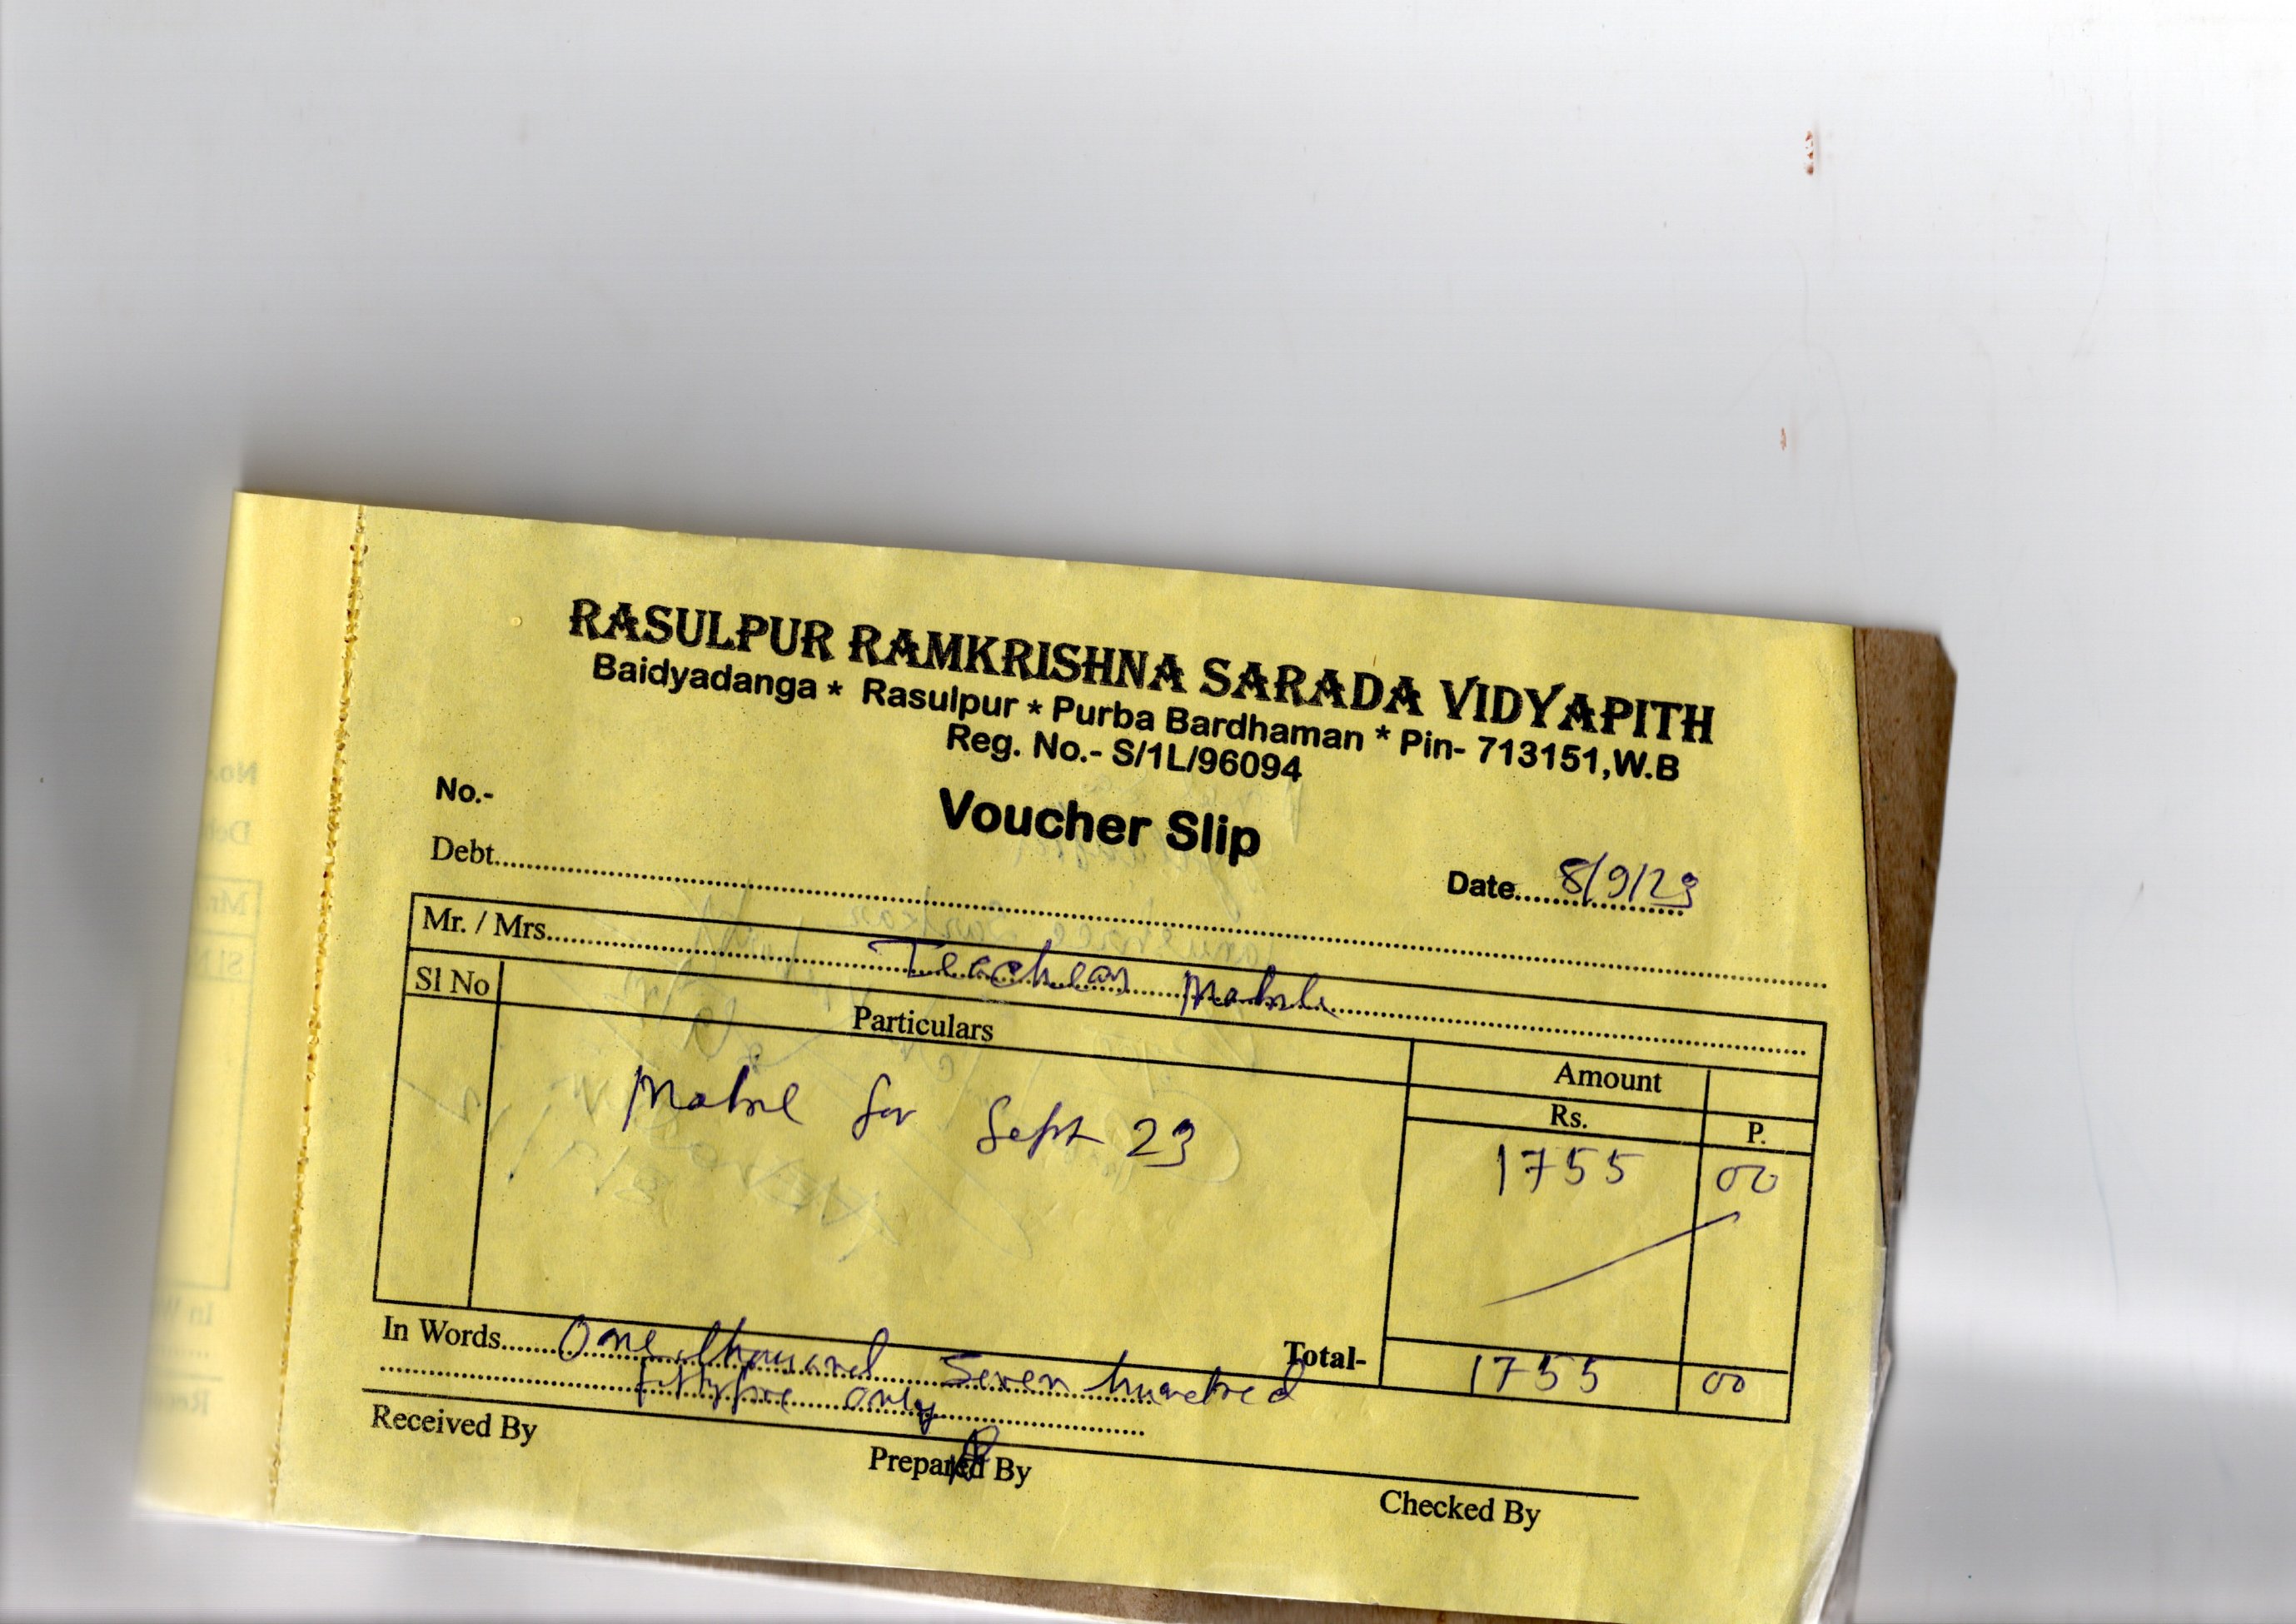 RASULPUR RAMKRISHNA SARADA VIDYAPITH
Baidyadanga * Rasulpur * Purba Bardhaman * Pin- 713151,W.B
Reg. No.- S/1L/96094
No.-
Voucher Slip
Date.... 8/9/23
Debt....
Mr. / Mrs....
Sl No Particulars Amount
Rs. P.
for Sept 23 1755 00
Total- 1755 00
In Words.... One thousand Seven hundred
fiftyfive only
Received By Prepared By Checked By